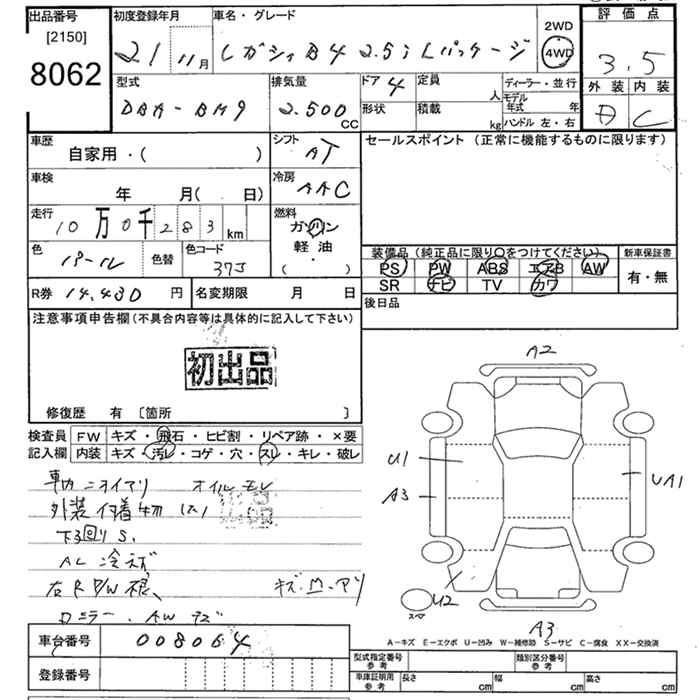 出品番号
[2150]
8062
初度登録年月
21 11月
車名・グレード
レガシィB4 2.5i Lパッケージ
2WD
4WD
評価点
3.5
外装 内装
C
型式
DBA-BM9
排気量
2.500 CC
ドア 4
形状
定員 人
積載 kg
ディーラー・並行
モデル年式 年
ハンドル 左・右
車歴
自家用・( )
シフト
AT
セールスポイント(正常に機能するものに限ります)
車検
年 月( 日)
冷房
AAC
走行
10万0千283km
燃料
ガソリン
軽油
( ・ )
色
パール
色替
色コード
37J
装備品(純正品に限り○をつけてください)
PS PW ABS エアB AW
SR ナビ TV カワ
新車保証書
有・無
R券 14,430 円
名変期限 月 日
後日品
注意事項申告欄(不具合内容等は具体的に記入して下さい)
初出品
修復歴 有 〔箇所 〕
検査員
記入欄
FW キズ・飛石・ヒビ割・リペア跡・×要
内装 キズ・汚レ・コゲ・穴・スレ・キレ・破レ
車内ニオイアリ オイルモレ
外装付着物
下回りS.
AC冷エズ
右R P/W
キズ.
ミラー・AWキズ
A2
U1
A3
UA1
U2
スペア
A3
A－キズ E－エクボ U－凹み W－補修跡 S－サビ C－腐食 XX－交換済
車台番号
008064
登録番号
型式指定番号
参考
類別区分番号
参考
車庫証明用
参考
長さ cm
幅 cm
高さ cm